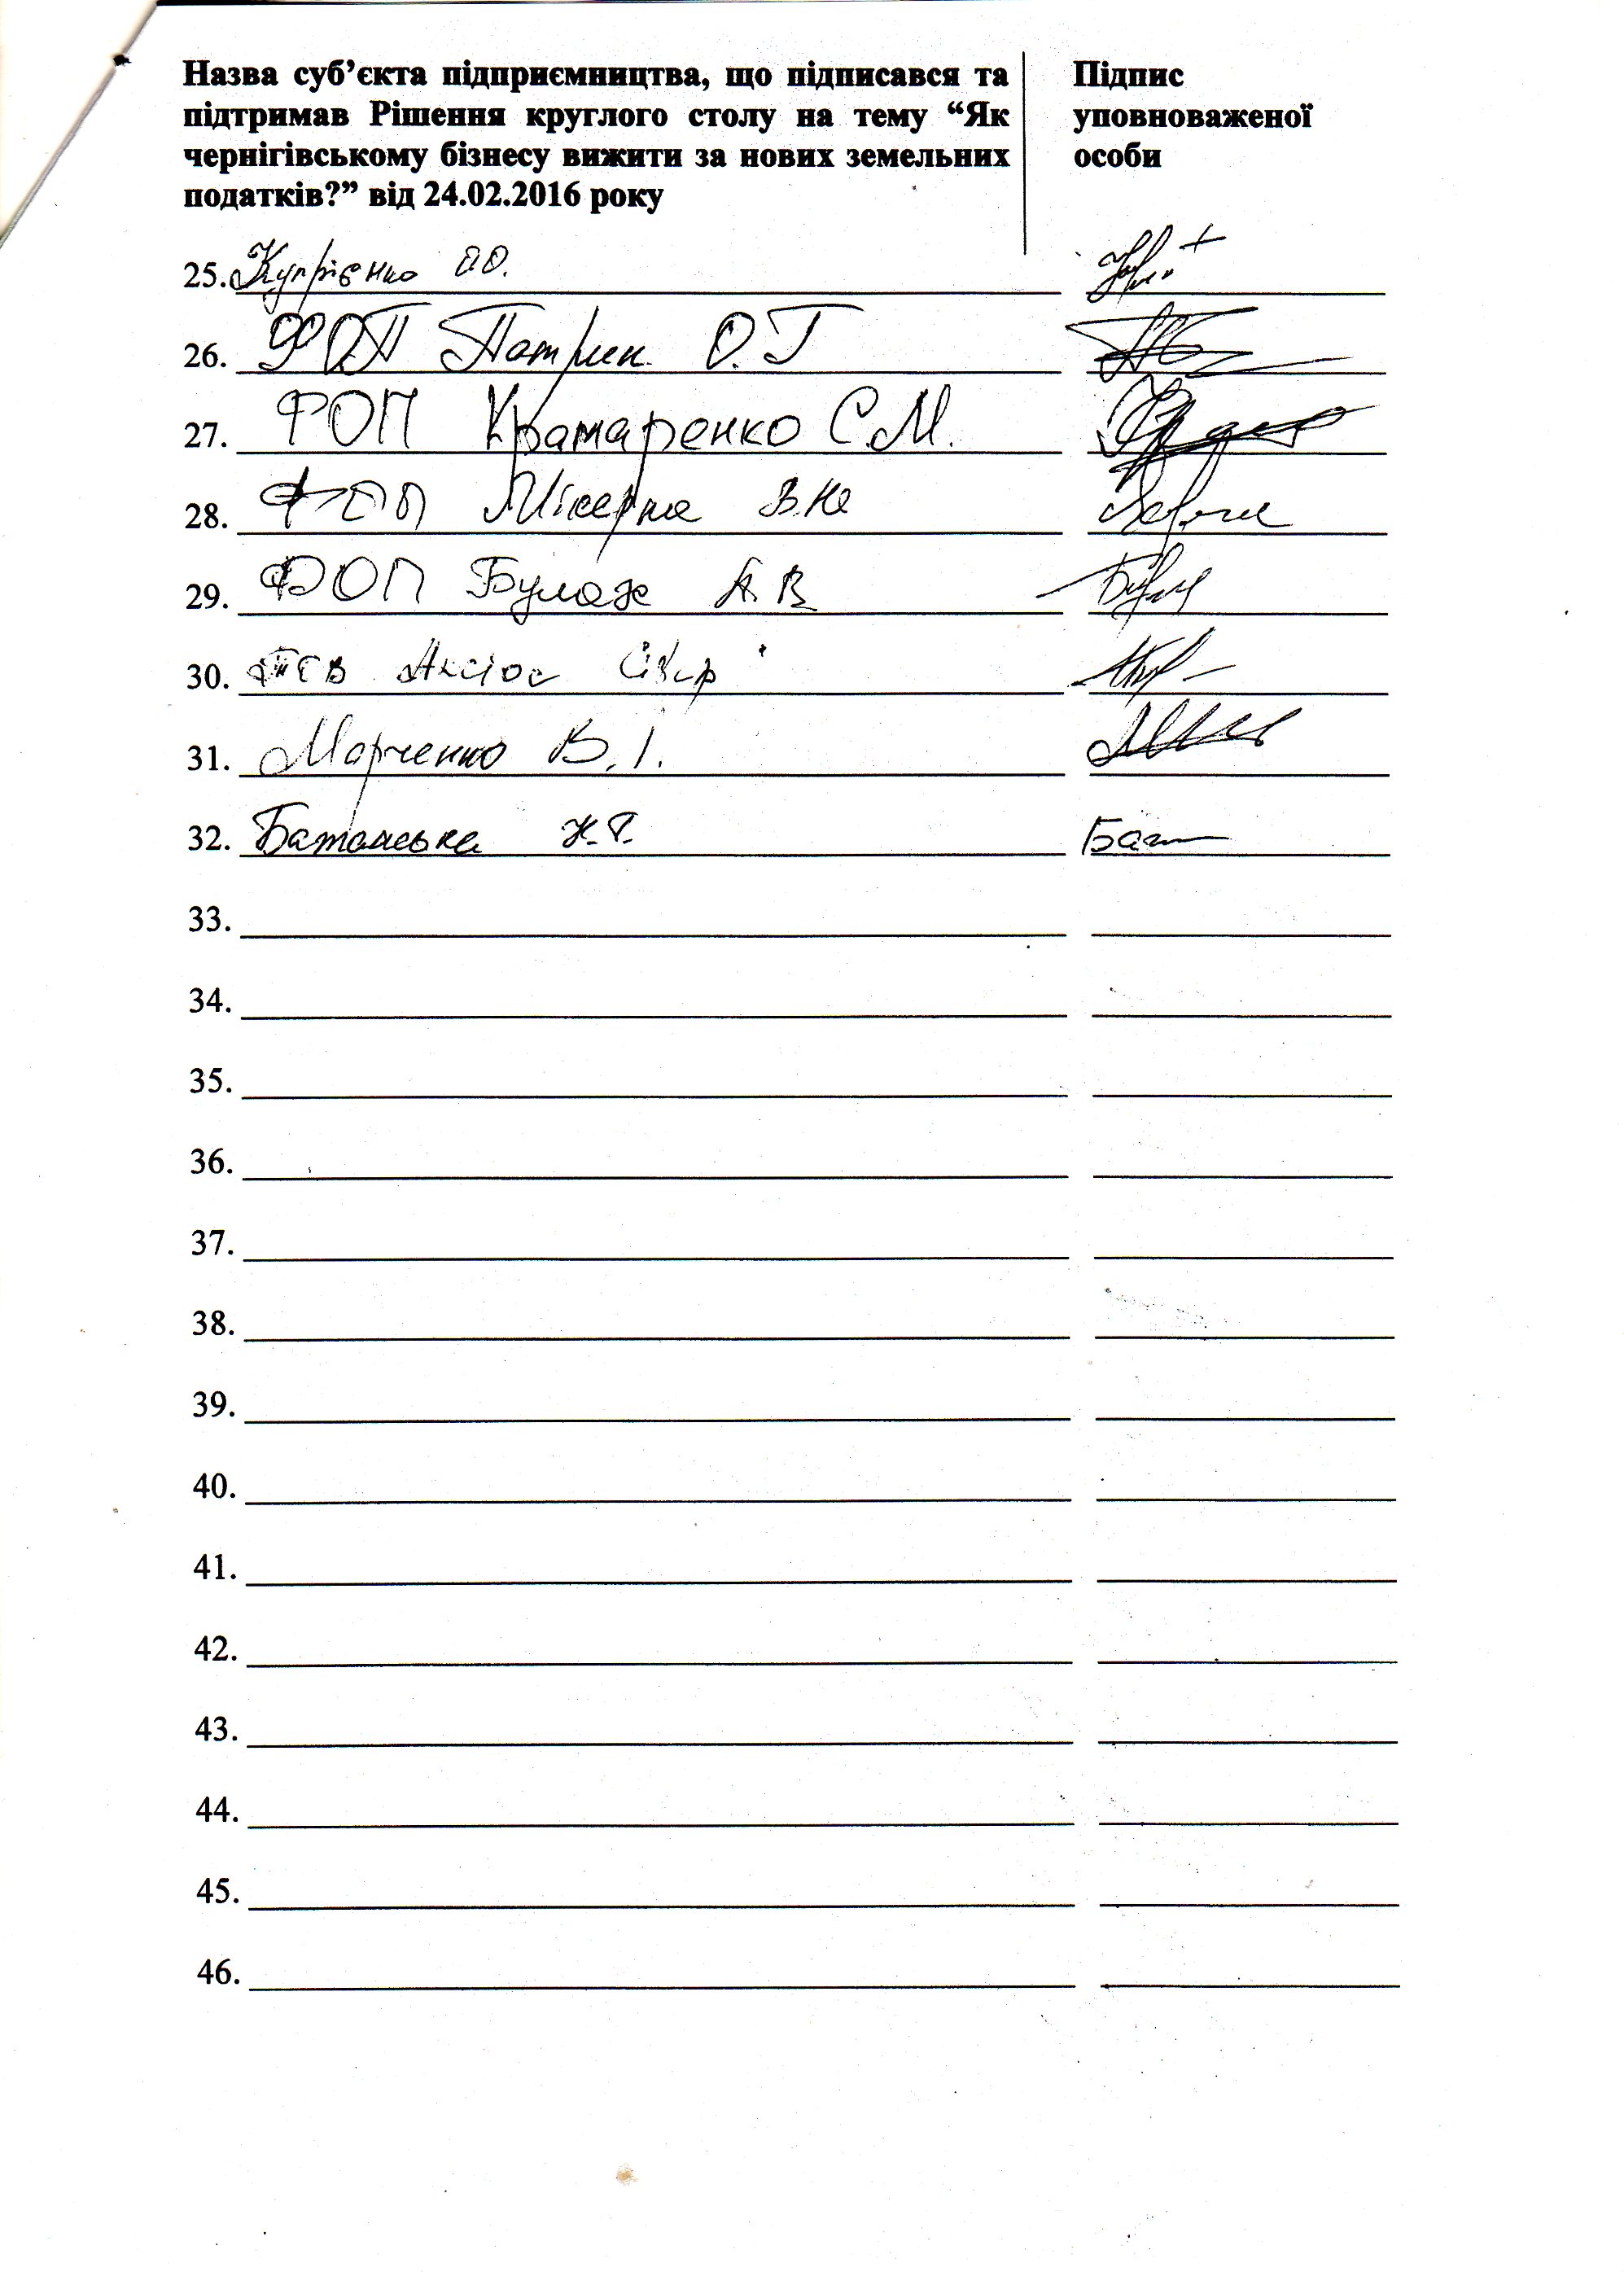 Назва суб’єкта підприємництва, що підписався та
підтримав Рішення круглого столу на тему “Як
чернігівському бізнесу вижити за нових земельних
податків?” від 24.02.2016 року
Підпис
уповноваженої
особи
25. Купрієнко
26. ФОП Патрик О.Г
27. ФОП Крамаренко С.М.
28. ФОП
29. ФОП Булах А.В
30. ТОВ Аксіос
31. Марченко В.І.
32. Батанська
33.
34.
35.
36.
37.
38.
39.
40.
41.
42.
43.
44.
45.
46.